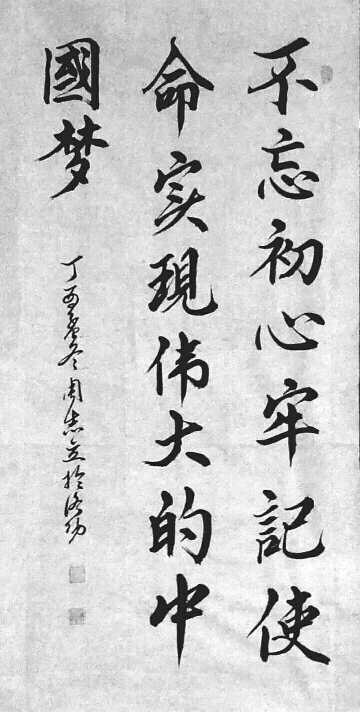 不忘初心牢記使
命实現伟大的中
國梦
丁酉孟冬周志立於洛功